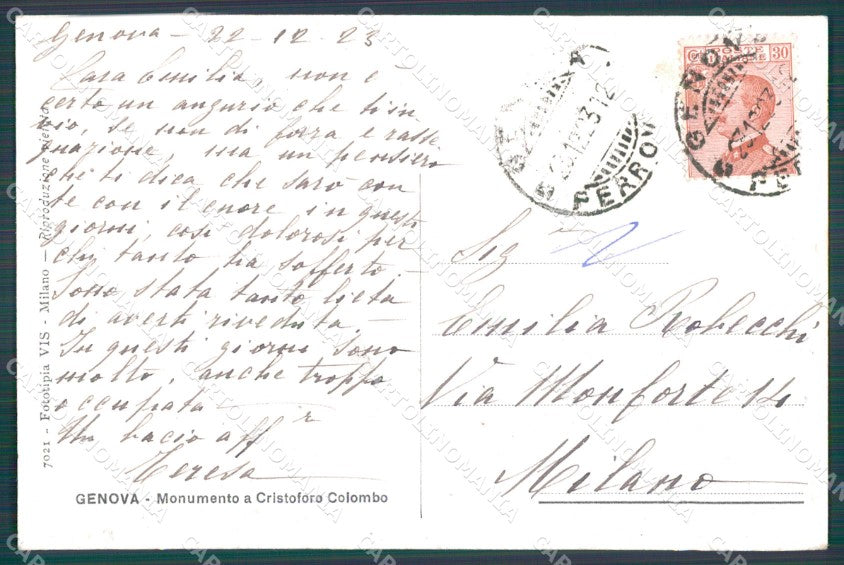 Genova - 22-12-23
Cara Emilia, non è
certo un augurio che ti in
vio, se non di forza e rasse
gnazione, ma un pensiero
che ti dica che sarò con
te con il cuore in questi
giorni, così dolorosi per
chi tanto ha sofferto -
Sono stata tanto lieta
di averti riveduta -
In questi giorni sono
molto, anche troppo
occupata -
Un bacio aff r
Teresa
GENOVA - Monumento a Cristoforo Colombo
7021 - Fototipia VIS - Milano - Riproduzione vietata
POSTE
30
GENOVA
23.12.23.12
FERROV
GENOVA
23.12.23
FE
Sig na
Emilia Robecchi
Via Monforte 14
Milano
CARTOLINOMANIA